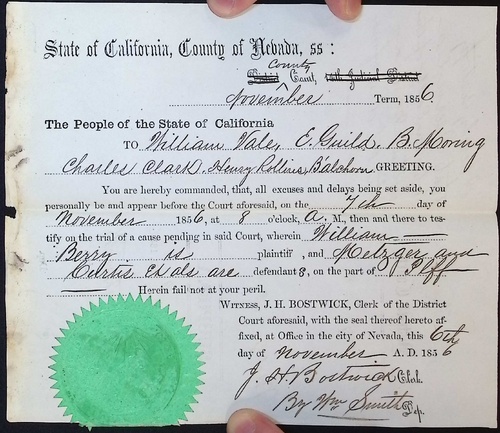 State of California, County of Nevada, ss:
County
District Court,
November Term, 1856.
The People of the State of California
TO William Vale, E. Guild, B. Moring
Charles Clark, Henry Rollins, GREETING.
You are hereby commanded, that, all excuses and delays being set aside, you
personally be and appear before the Court aforesaid, on the 7th day of
November 1856, at 8 o'clock, A. M., then and there to tes-
tify on the trial of a cause pending in said Court, wherein William
Berry is plaintiff, and Metzger and
Curtis et als are defendant s, on the part of Plff
Herein fail not at your peril.
WITNESS, J. H. BOSTWICK, Clerk of the District
Court aforesaid, with the seal thereof hereto af-
fixed, at Office in the city of Nevada, this 6th
day of November A. D. 1856
J. H. Bostwick Clerk.
By Wm Smith Dep.